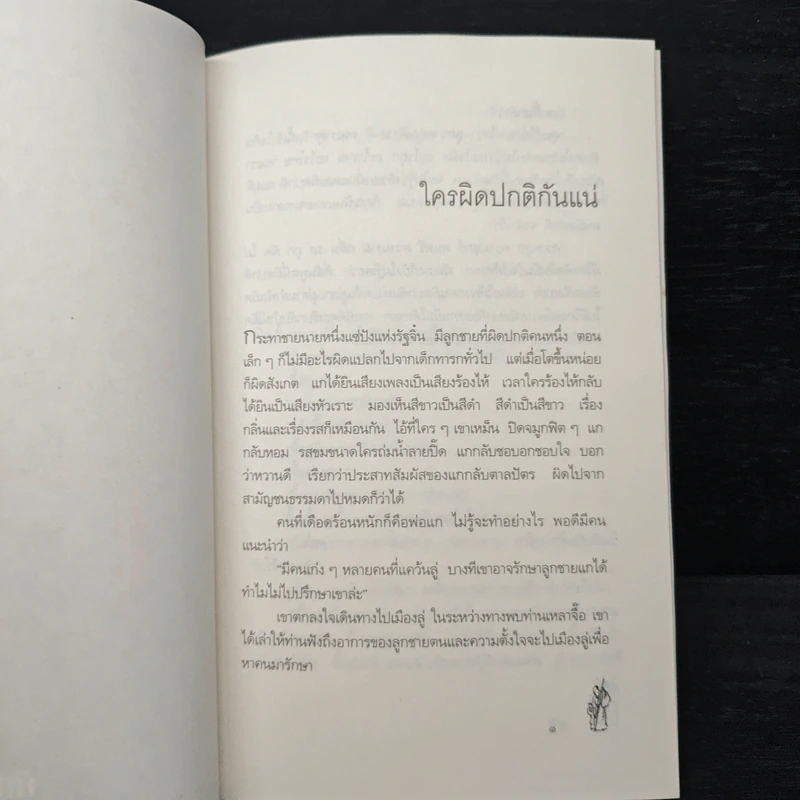 ใครผิดปกติกันแน่
กระทาชายนายหนึ่งแซ่ปังแห่งรัฐจิ๋น มีลูกชายที่ผิดปกติคนหนึ่ง ตอน
เล็ก ๆ ก็ไม่มีอะไรผิดแปลกไปจากเด็กทารกทั่วไป แต่เมื่อโตขึ้นหน่อย
ก็ผิดสังเกต แกได้ยินเสียงเพลงเป็นเสียงร้องไห้ เวลาใครร้องไห้กลับ
ได้ยินเป็นเสียงหัวเราะ มองเห็นสีขาวเป็นสีดำ สีดำเป็นสีขาว เรื่อง
กลิ่นและเรื่องรสก็เหมือนกัน ไอ้ที่ใคร ๆ เขาเหม็น ปิดจมูกฟิต ๆ แก
กลับหอม รสขมขนาดใครถ่มน้ำลายปี๊ด แกกลับชอบอกชอบใจ บอก
ว่าหวานดี เรียกว่าประสาทสัมผัสของแกกลับตาลปัตร ผิดไปจาก
สามัญชนธรรมดาไปหมดก็ว่าได้
คนที่เดือดร้อนหนักก็คือพ่อแก ไม่รู้จะทำอย่างไร พอดีมีคน
แนะนำว่า
"มีคนเก่ง ๆ หลายคนที่แคว้นลู่ บางทีเขาอาจรักษาลูกชายแกได้
ทำไมไม่ไปปรึกษาเขาล่ะ"
เขาตกลงใจเดินทางไปเมืองลู่ ในระหว่างทางพบท่านเหลาจื๊อ เขา
ได้เล่าให้ท่านฟังถึงอาการของลูกชายตนและความตั้งใจจะไปเมืองลู่เพื่อ
หาคนมารักษา
๑